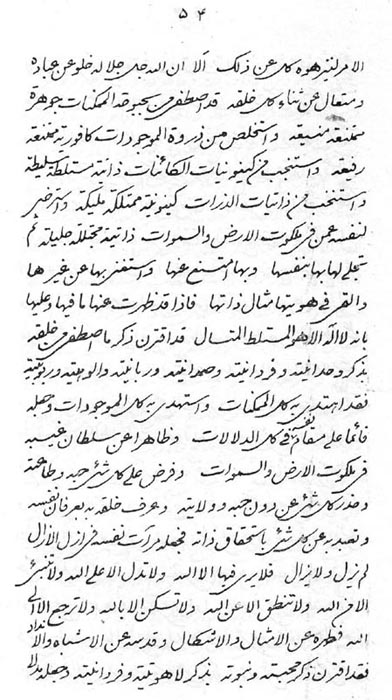 ۵۴
الامر لینزهوه کل عن ذلک الا ان الله جل جلاله خلو عن عباده
و متعال عن ثناء کل خلقه قد اصطفی من بحبوحة الممکنات جوهرة
ممتنعة منیعة و استخلص من ذروة الموجودات کافوریة مرتفعة
رفیعة و انتخب من کینونیات الکائنات ذاتیة متسلطة سلیطة
و انتخب من ذاتیات الذرات کینونیة ممتلکة ملیکة و ارتضی
لنفسه عمن فی ملکوت الارض والسموات ذاتیة مجتللة جلیلة ثم
تجلی لها بها بنفسها و بها امتنع عنها و استغنی بها عن غیرها
والقی فی هویتها مثال ذاتها فاذا قد ظهرت عنها ما فیها و علیها
بانه لا اله الا هو المتسلط المتعال قد اقترن ذکر ما اصطفی من خلقه
بذکر وحدانیته و فردانیته و صمدانیته و ربانیته والوهیته و ربوبیته
فقد اهتدی به کل الممکنات و استهدی به کل الموجودات و جعله
قائما علی مقام نفسه فی کل الدلالات و ظاهرا عن سلطان غیبه
فی ملکوت الارض والسموات و فرض علی کل شئ حبه و طاعته
و حذر کل شئ عن دون حبه و ولایته و عرف خلقه به بعرفان نفسه
و تعبد به عن کل شئ باستحقاق ذاته فجعله مرآت نفسه فی ازل الازال
لم یزل و لا یزال فلا یری فیها الا الله و لا تدل الا علی الله و لا تنبئ
الا عن الله و لا تنطق الا عن الله و لا تسکن الا بالله و لا ترجع الا الی
الله فطهره عن الامثال والاشکال و قدسه عن الاشباه والانداد
فقد اقترن ذکر محبته و نبوته بذکر لاهوتیته و فردانیته و جعله